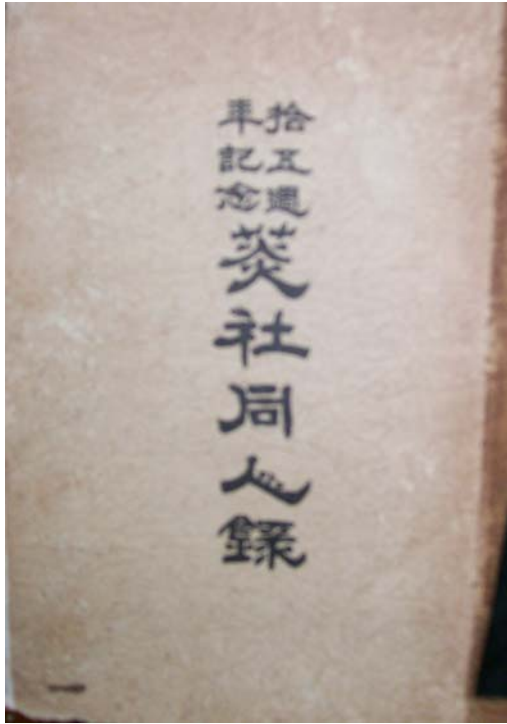 拾五週
年記念
菼社同人錄
一